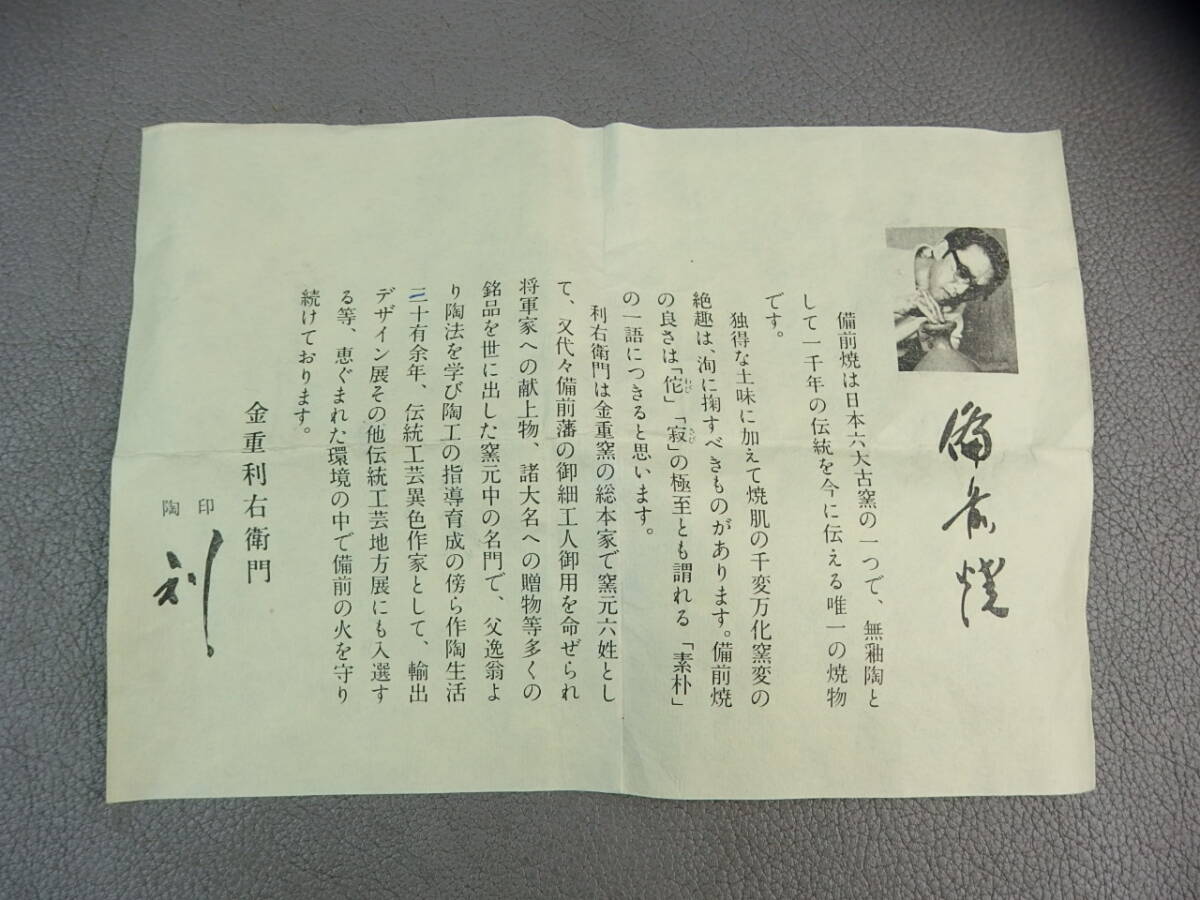 備前焼
備前焼は日本六大古窯の一つで、無釉陶と
して一千年の伝統を今に伝える唯一の焼物
です。
独得な土味に加えて焼肌の千変万化窯変の
絶趣は、洵に掬すべきものがあります。備前焼
の良さは「侘」「寂」の極至とも謂れる「素朴」
の一語につきると思います。
利右衛門は金重窯の総本家で窯元六姓とし
て、又代々備前藩の御細工人御用を命ぜられ
将軍家への献上物、諸大名への贈物等多くの
銘品を世に出した窯元中の名門で、父逸翁よ
り陶法を学び陶工の指導育成の傍ら作陶生活
三十有余年、伝統工芸異色作家として、輸出
デザイン展その他伝統工芸地方展にも入選す
る等、恵ぐまれた環境の中で備前の火を守り
続けております。
金重利右衛門
陶印
利